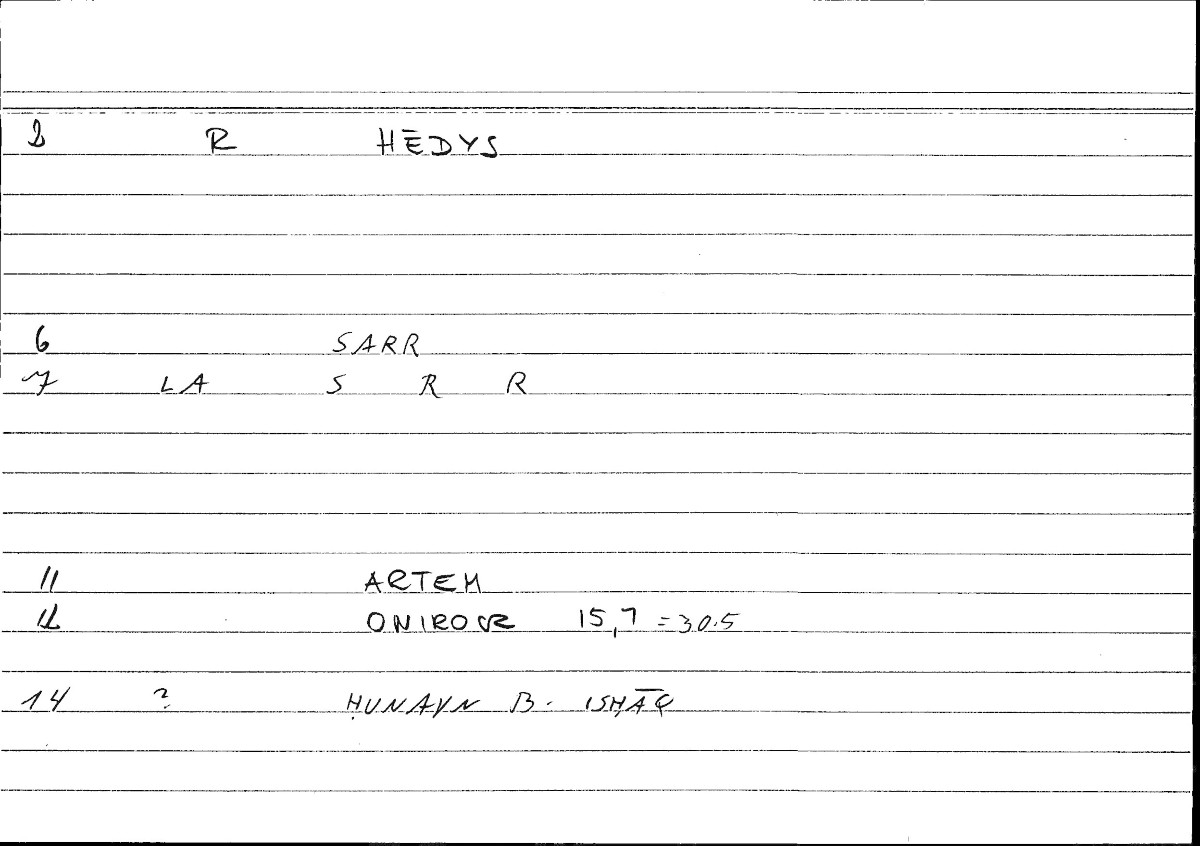 2 R HĒDYS
6 SARR
7 LA S R R
11 ARTEM
12 ONIROCR 15,7 = 30.5
14 ? ḤUNAYN B. ISḤĀQ